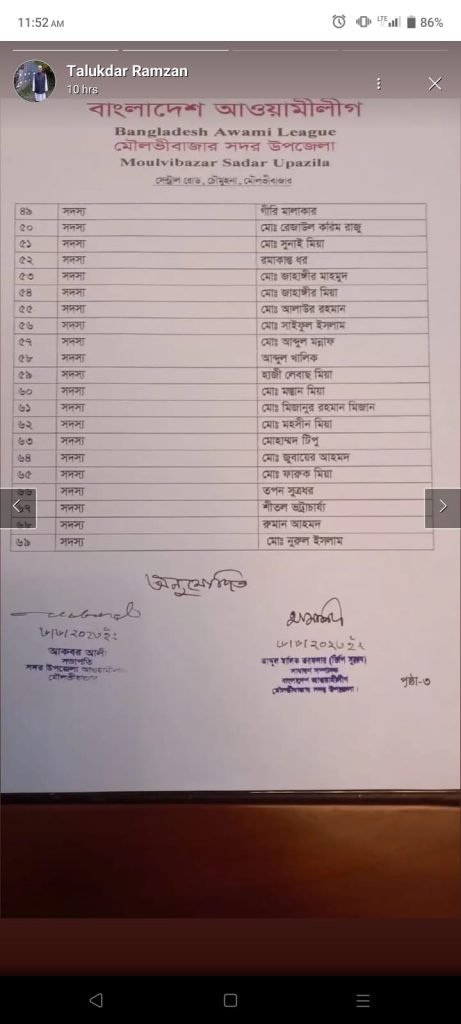 11:52 AM
LTE
86%
Talukdar Ramzan
10 hrs
বাংলাদেশ আওয়ামীলীগ
Bangladesh Awami League
মৌলভীবাজার সদর উপজেলা
Moulvibazar Sadar Upazila
সেন্ট্রাল রোড, চৌমুহনা, মৌলভীবাজার
৪৯ সদস্য গীরি মালাকার
৫০ সদস্য মোঃ রেজাউল করিম রাজু
৫১ সদস্য মোঃ সুনাই মিয়া
৫২ সদস্য রমাকান্ত ধর
৫৩ সদস্য মোঃ জাহাঙ্গীর মাহমুদ
৫৪ সদস্য মোঃ জাহাঙ্গীর মিয়া
৫৫ সদস্য মোঃ আলাউর রহমান
৫৬ সদস্য মোঃ সাইফুল ইসলাম
৫৭ সদস্য মোঃ আব্দুল মন্নাফ
৫৮ সদস্য আব্দুল খালিক
৫৯ সদস্য হাজী লেবাছ মিয়া
৬০ সদস্য মোঃ মন্তান মিয়া
৬১ সদস্য মোঃ মিজানুর রহমান মিজান
৬২ সদস্য মোঃ মহসীন মিয়া
৬৩ সদস্য মোহাম্মদ টিপু
৬৪ সদস্য মোঃ জুবায়ের আহমদ
৬৫ সদস্য মোঃ ফারুক মিয়া
৬৬ সদস্য তপন সুত্রধর
৬৭ সদস্য শীতল ভট্রাচার্য্য
৬৮ সদস্য রুমান আহমদ
৬৯ সদস্য মোঃ নুরুল ইসলাম
অনুমোদিত
আকবর আলী
সভাপতি
সদর উপজেলা আওয়ামীলীগ
মৌলভীবাজার
আব্দুল মালিক তরফদার (ভিপি সুয়েব)
সাধারণ সম্পাদক
বাংলাদেশ আওয়ামীলীগ
মৌলভীবাজার সদর উপজেলা।
পৃষ্ঠা-৩